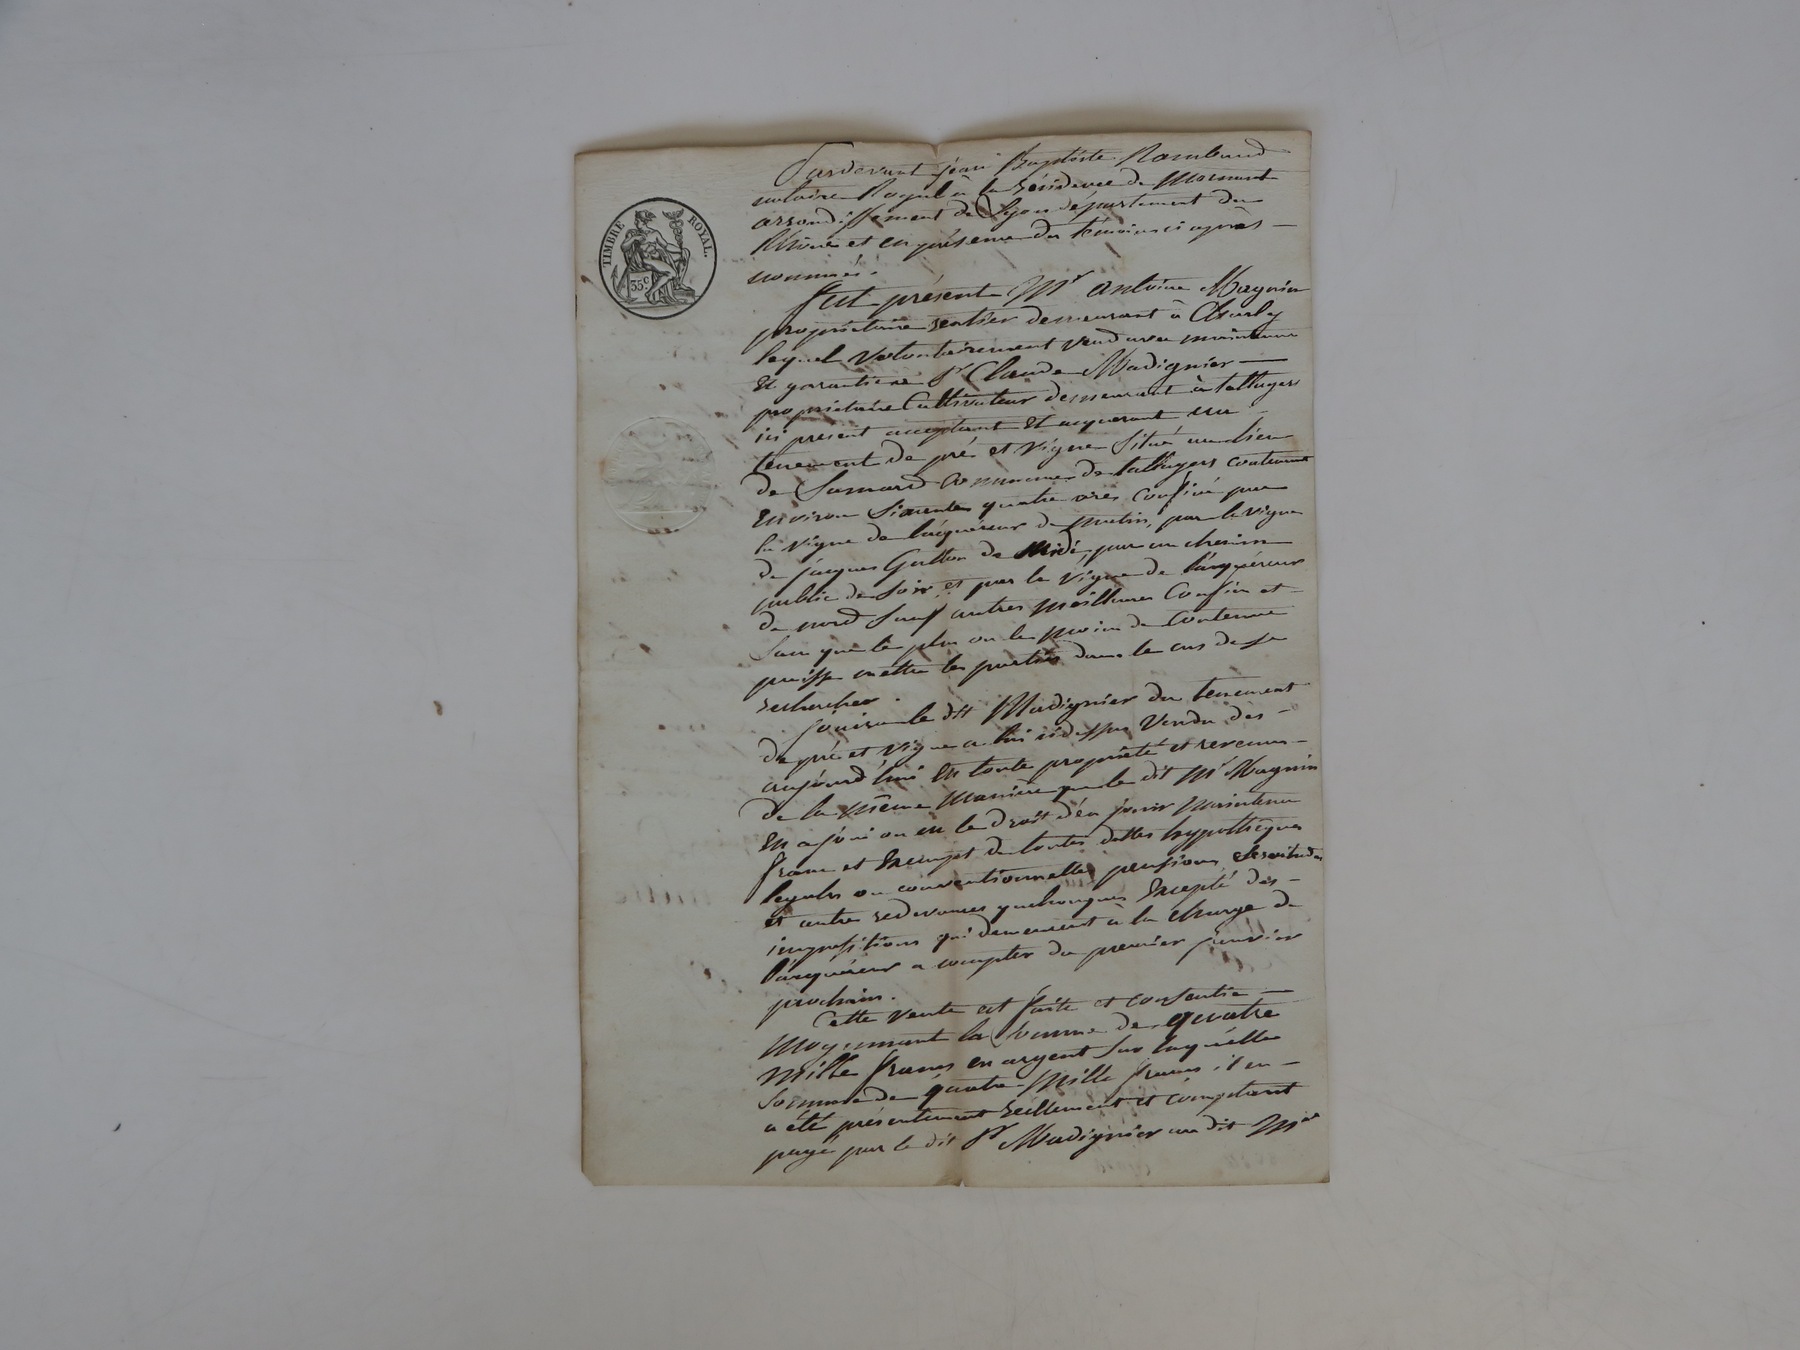 TIMBRE ROYAL.
35c
Pardevant jean Baptiste Rambaud
notaire Royal à la résidence de Mornant
arrondissement de Lyon département du
Rhône et en présence des témoins ci après
nommés.
fut présent Mr antoine Magnin
propriétaire rentier demeurant à Charly
lequel volontairement vend avec maintenue
Et garantie à Sr Claude Madignier
propriétaire Cultivateur demeurant à taluyers
ici present acceptant Et acquerant un
tenement de pré et vigne Situé au lieu
de commune de talluyers contenant
Environ Soixante quatre ares confiné par
la vigne de l'acquéreur de matin, par la vigne
de jacques de Midi, par un chemin
public de Soir, et par la vigne de l'acquéreur
de nord Sauf autres meilleurs Confins et
Sans que le plus ou le moins de Contenue
puisse mettre les parties dans le cas de se
rechercher.
Jouira le dit Madignier du tenement
de pré et vigne a lui ci dessus vendu dès
aujourd'hui En toute propriété et revenus
de la même manière que le dit Mr Magnin
En a joui ou eu le droit d'en jouir maintenu
franc et Exempt de toutes dettes hypothèques
legales ou conventionnelles pensions servitudes
et autres redevances quelconques Excepté des
impositions qui demeurent à la charge de
l'acquéreur a compter du premier janvier
prochain.
Cette vente est faite et consentie
moyennant la Somme de quatre
mille francs en argent Sur laquelle
Somme de quatre mille francs il en
a été présentement réellement et comptant
payé par le dit Sr Madignier au dit Mr